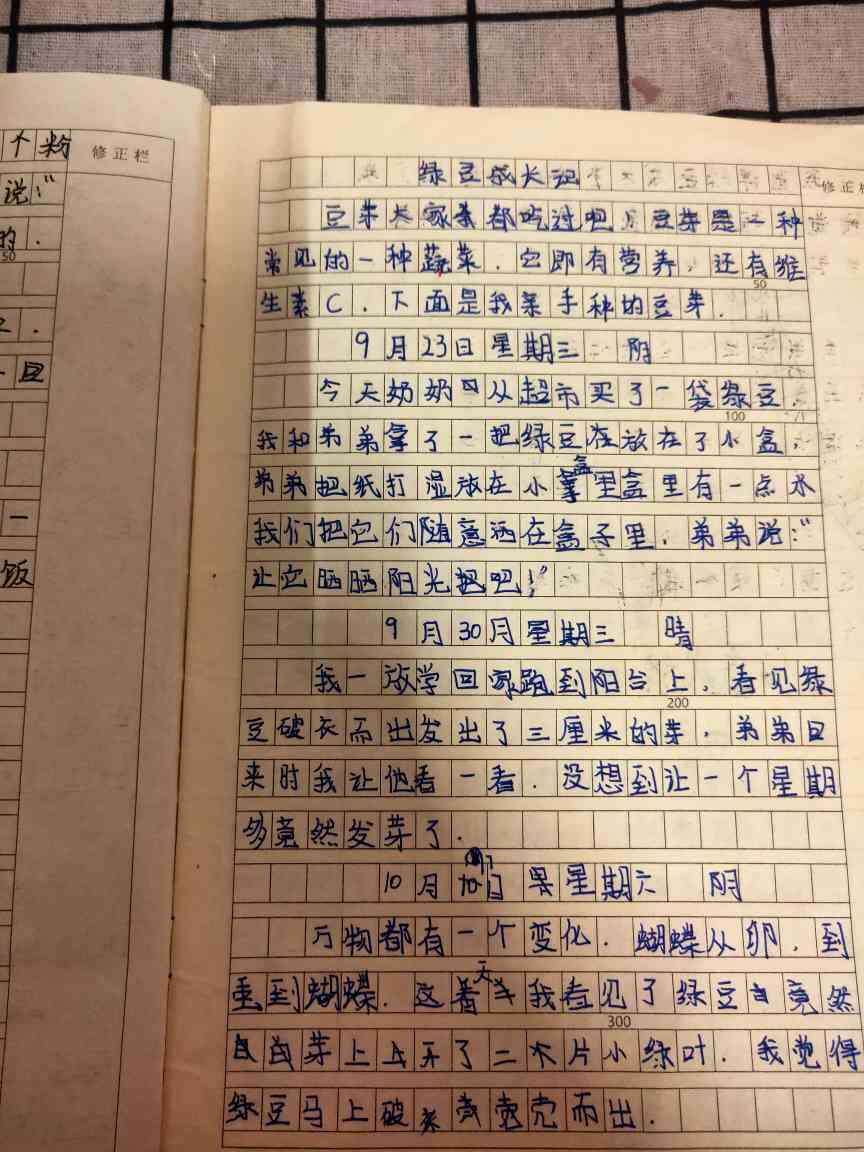 个粉
修正栏
说:"
的.
50
一
饭
绿豆成长记
修正栏
豆芽大家都吃过吧豆芽是一种
常见的一种蔬菜.它即有营养,还有维
50
生素C.下面是我亲手种的豆芽.
9月23日星期三 阴
今天奶奶从超市买了一袋绿豆.
100
我和弟弟拿了一把绿豆在放在了小盒,
弟弟把纸打湿放在小盒里盒里有一点水
我们把它们随意洒在盒子里.弟弟说:"
让它晒晒阳光把吧!"
9月30月星期三 晴
我一放学回家跑到阳台上,看见绿
200
豆破衣而出发出了三厘米的芽,弟弟日
来时我让他看一看.没想到让一个星期
多竟然发芽了.
10月日星期六 阴
万物都有一个变化.蝴蝶从卵,到
到蝴蝶.这天我看见了绿豆竟然
300
芽上上开了二片小绿叶.我觉得
绿豆马上破壳而出.